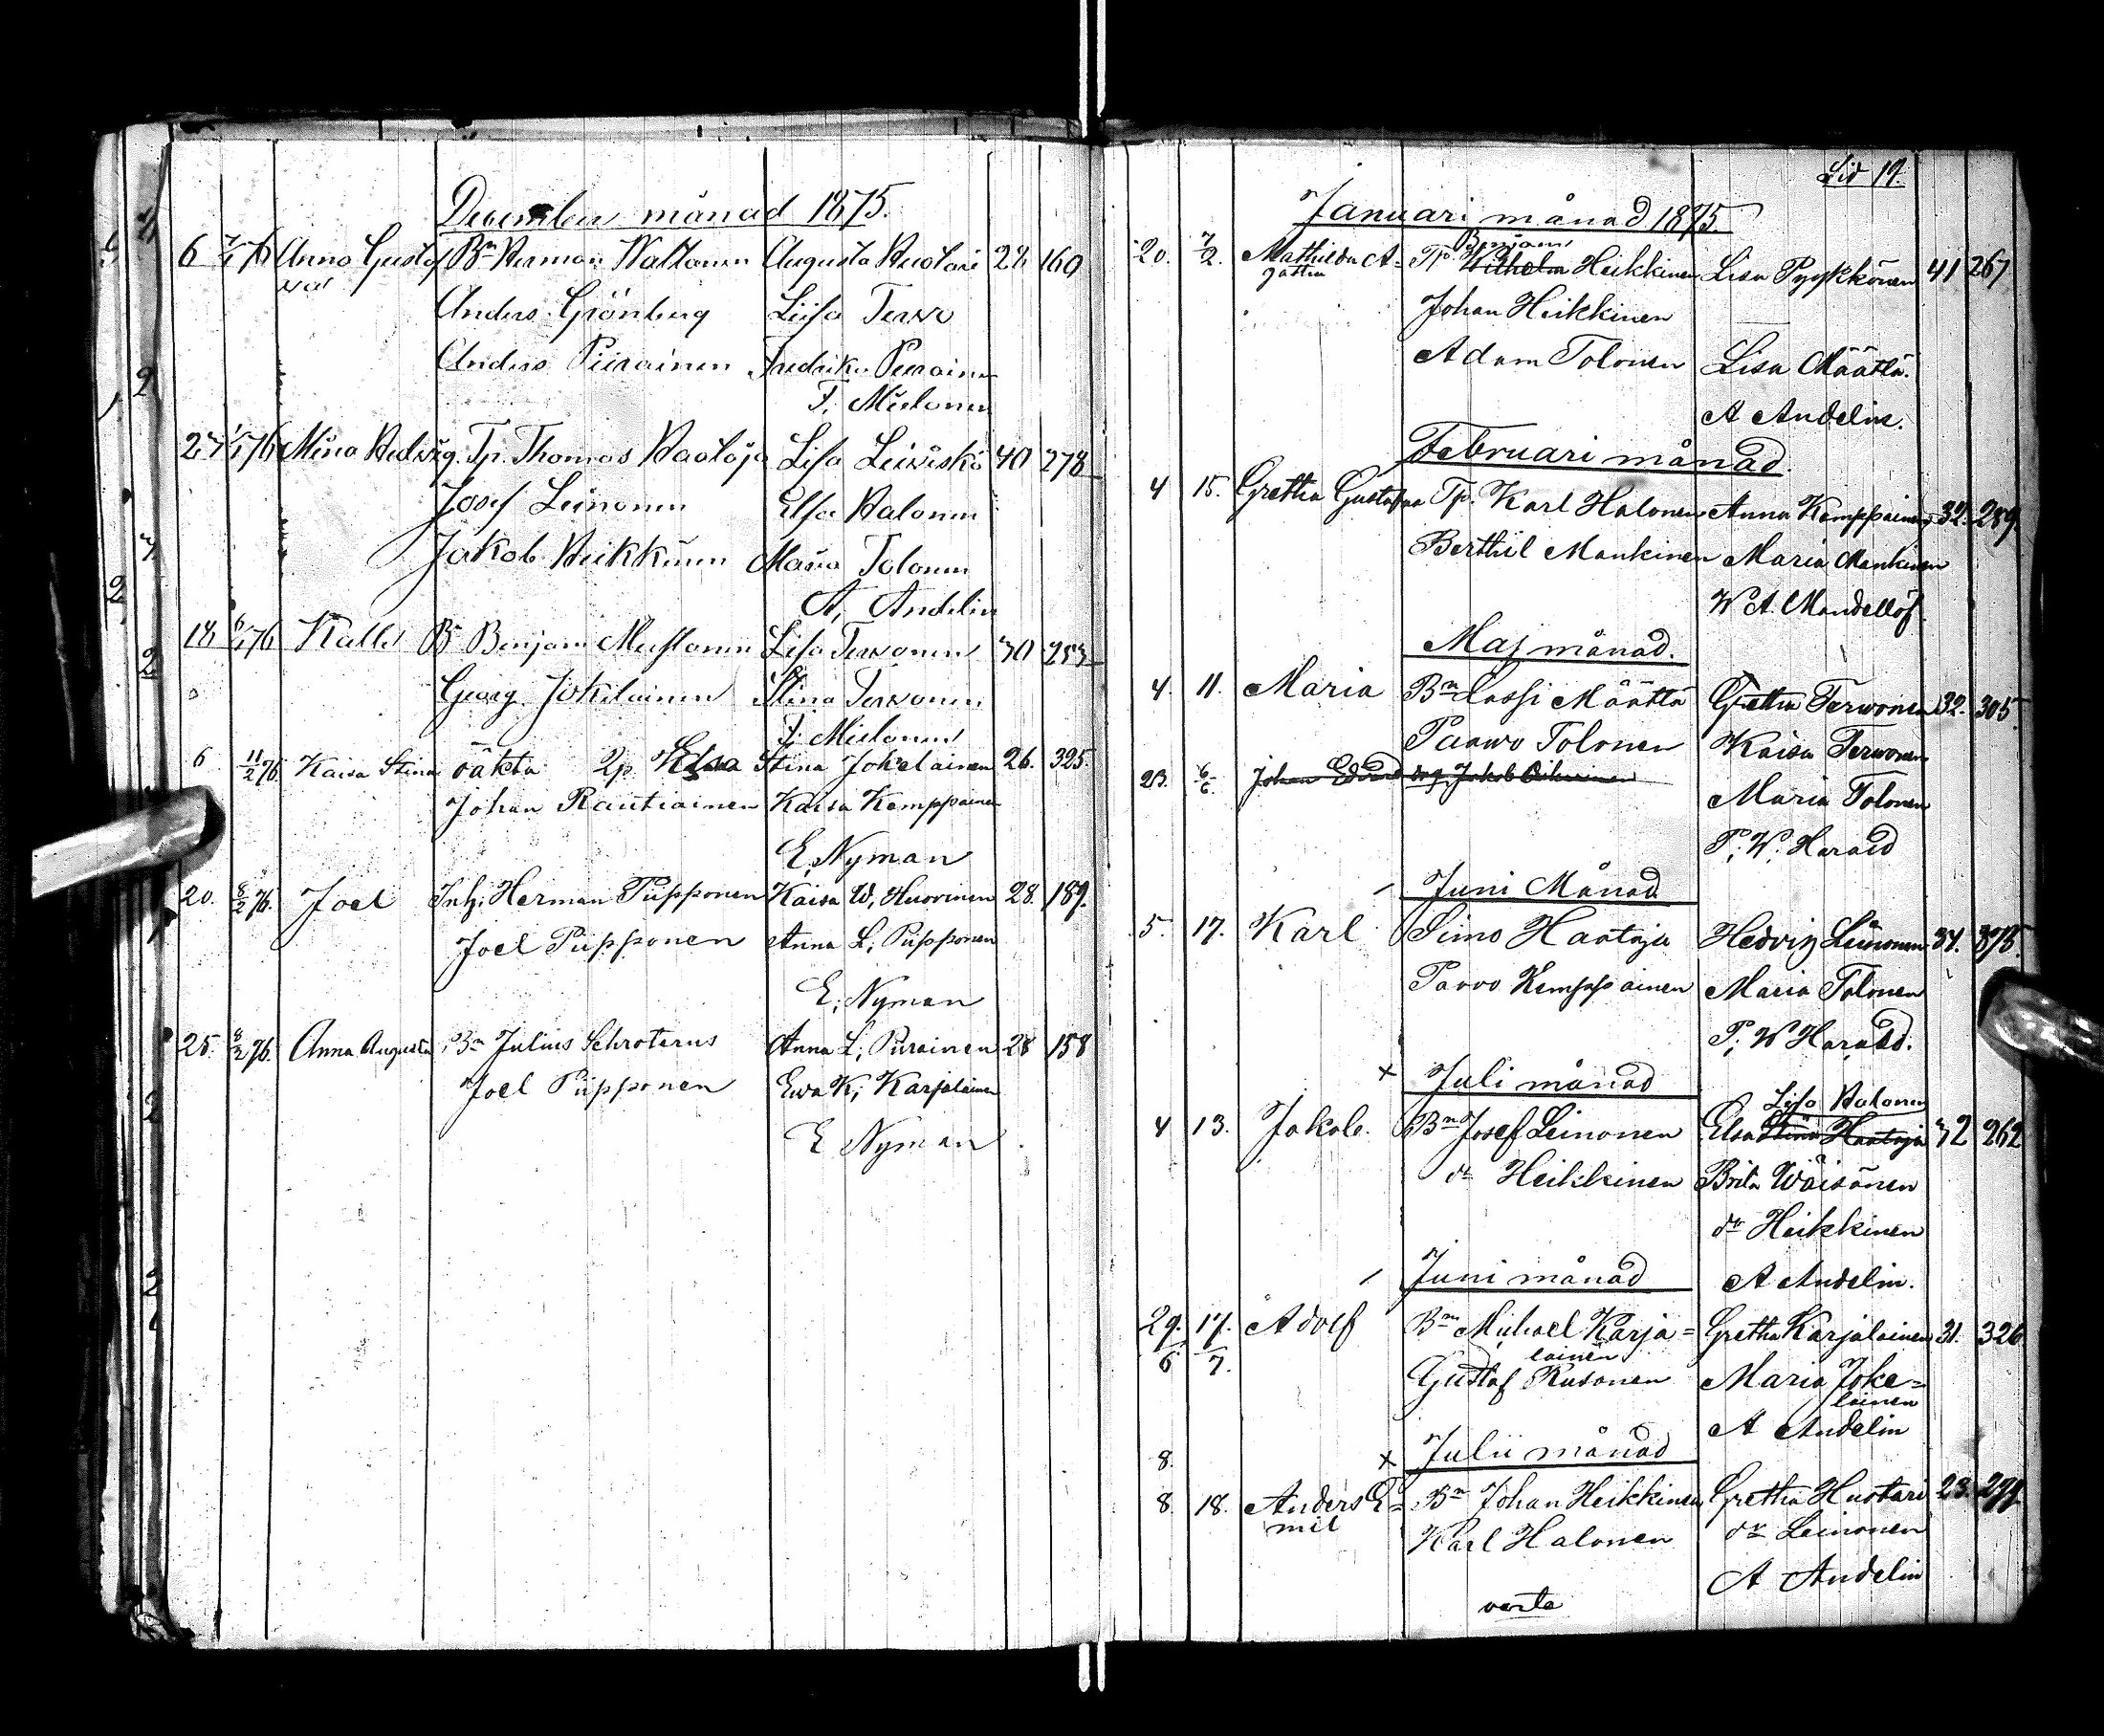 December månad 1875.
6 7/1 76 Anna Gustaf Bn Herman Waltanen Augusta Huotari 28 160
va
Anders Grönberg Liisa Tervo
Anders Piirainen Fredrika Piirainen
F. Mielonen
27 1/1 76 Mina Hedvig Tp. Thomas Haataja Lisa Leiviskä 40 278
Josef Leinonen Elsa Halonen
Jakob Heikkinen Maria Tolonen
A. Andelin
18 6/1 76 Kalle Bn Benjam Mustonen Lisa Tervonen 30 253
Georg Jokelainen Stina Tervonen
F. Mielonen
6 11/2 76. Kaisa Stina oäkta Stina Jokelainen 26. 325.
Johan Rautiainen Kaisa Kemppainen
E. Nyman
20. 8/2 76. Joel Inh. Herman Piipponen Kaisa W. Huovinen 28. 189.
Joel Piipponen Anna L. Piipponen
E. Nyman
25. 8/2 76. Anna Augusta Bn Julius Schroterus Anna L. Piirainen 28 158
Joel Piipponen Ewa K. Karjalainen
E Nyman
Sid 19.
Januari månad 1875
Benjam
20. 7/2. Mathilda A= Tp. Wilhelm Heikkinen Lisa Pyykkönen 41 267
gatha
Johan Heikkinen
Adam Tolonen Lisa Määttä.
A Andelin.
Februari månad.
4 15. Gretha Gustafva Tp. Karl Halonen Anna Kemppainen 32. 289.
Berthil Mankinen Maria Mankinen
W A Mandellöf
Maj månad.
4. 11. Maria Bn Lassi Määttä Gretha Tervonen 32. 305
Paavo Tolonen Kaisa Tervonen
23. 6/6 Johan Edvard Jakob Oikarinen
Maria Tolonen
P. W. Harald
Juni Månad
5. 17. Karl Simo Haataja Hedvig Leinonen 34. 375.
Paavo Kemppainen Maria Tolonen
P. W Harald.
x Juli månad
Lisa Halonen
4 13. Jakob. Bn Josef Leinonen Elsa Stina Haataja 32 262
dr Heikkinen Brita Wäisänen
dr Heikkinen
Juni månad A Andelin.
29. 17. Adolf Bn Michael Karja= Gretha Karjalainen 31. 326
6 7. lainen
Gustaf Rusanen Maria Joke=
lainen
A Andelin
8. x Julii månad
8. 18. Anders E= Bn Johan Heikkinen Gretha Huotari 23. 299
mil dr Leinonen
Karl Halonen
A Andelin
verte